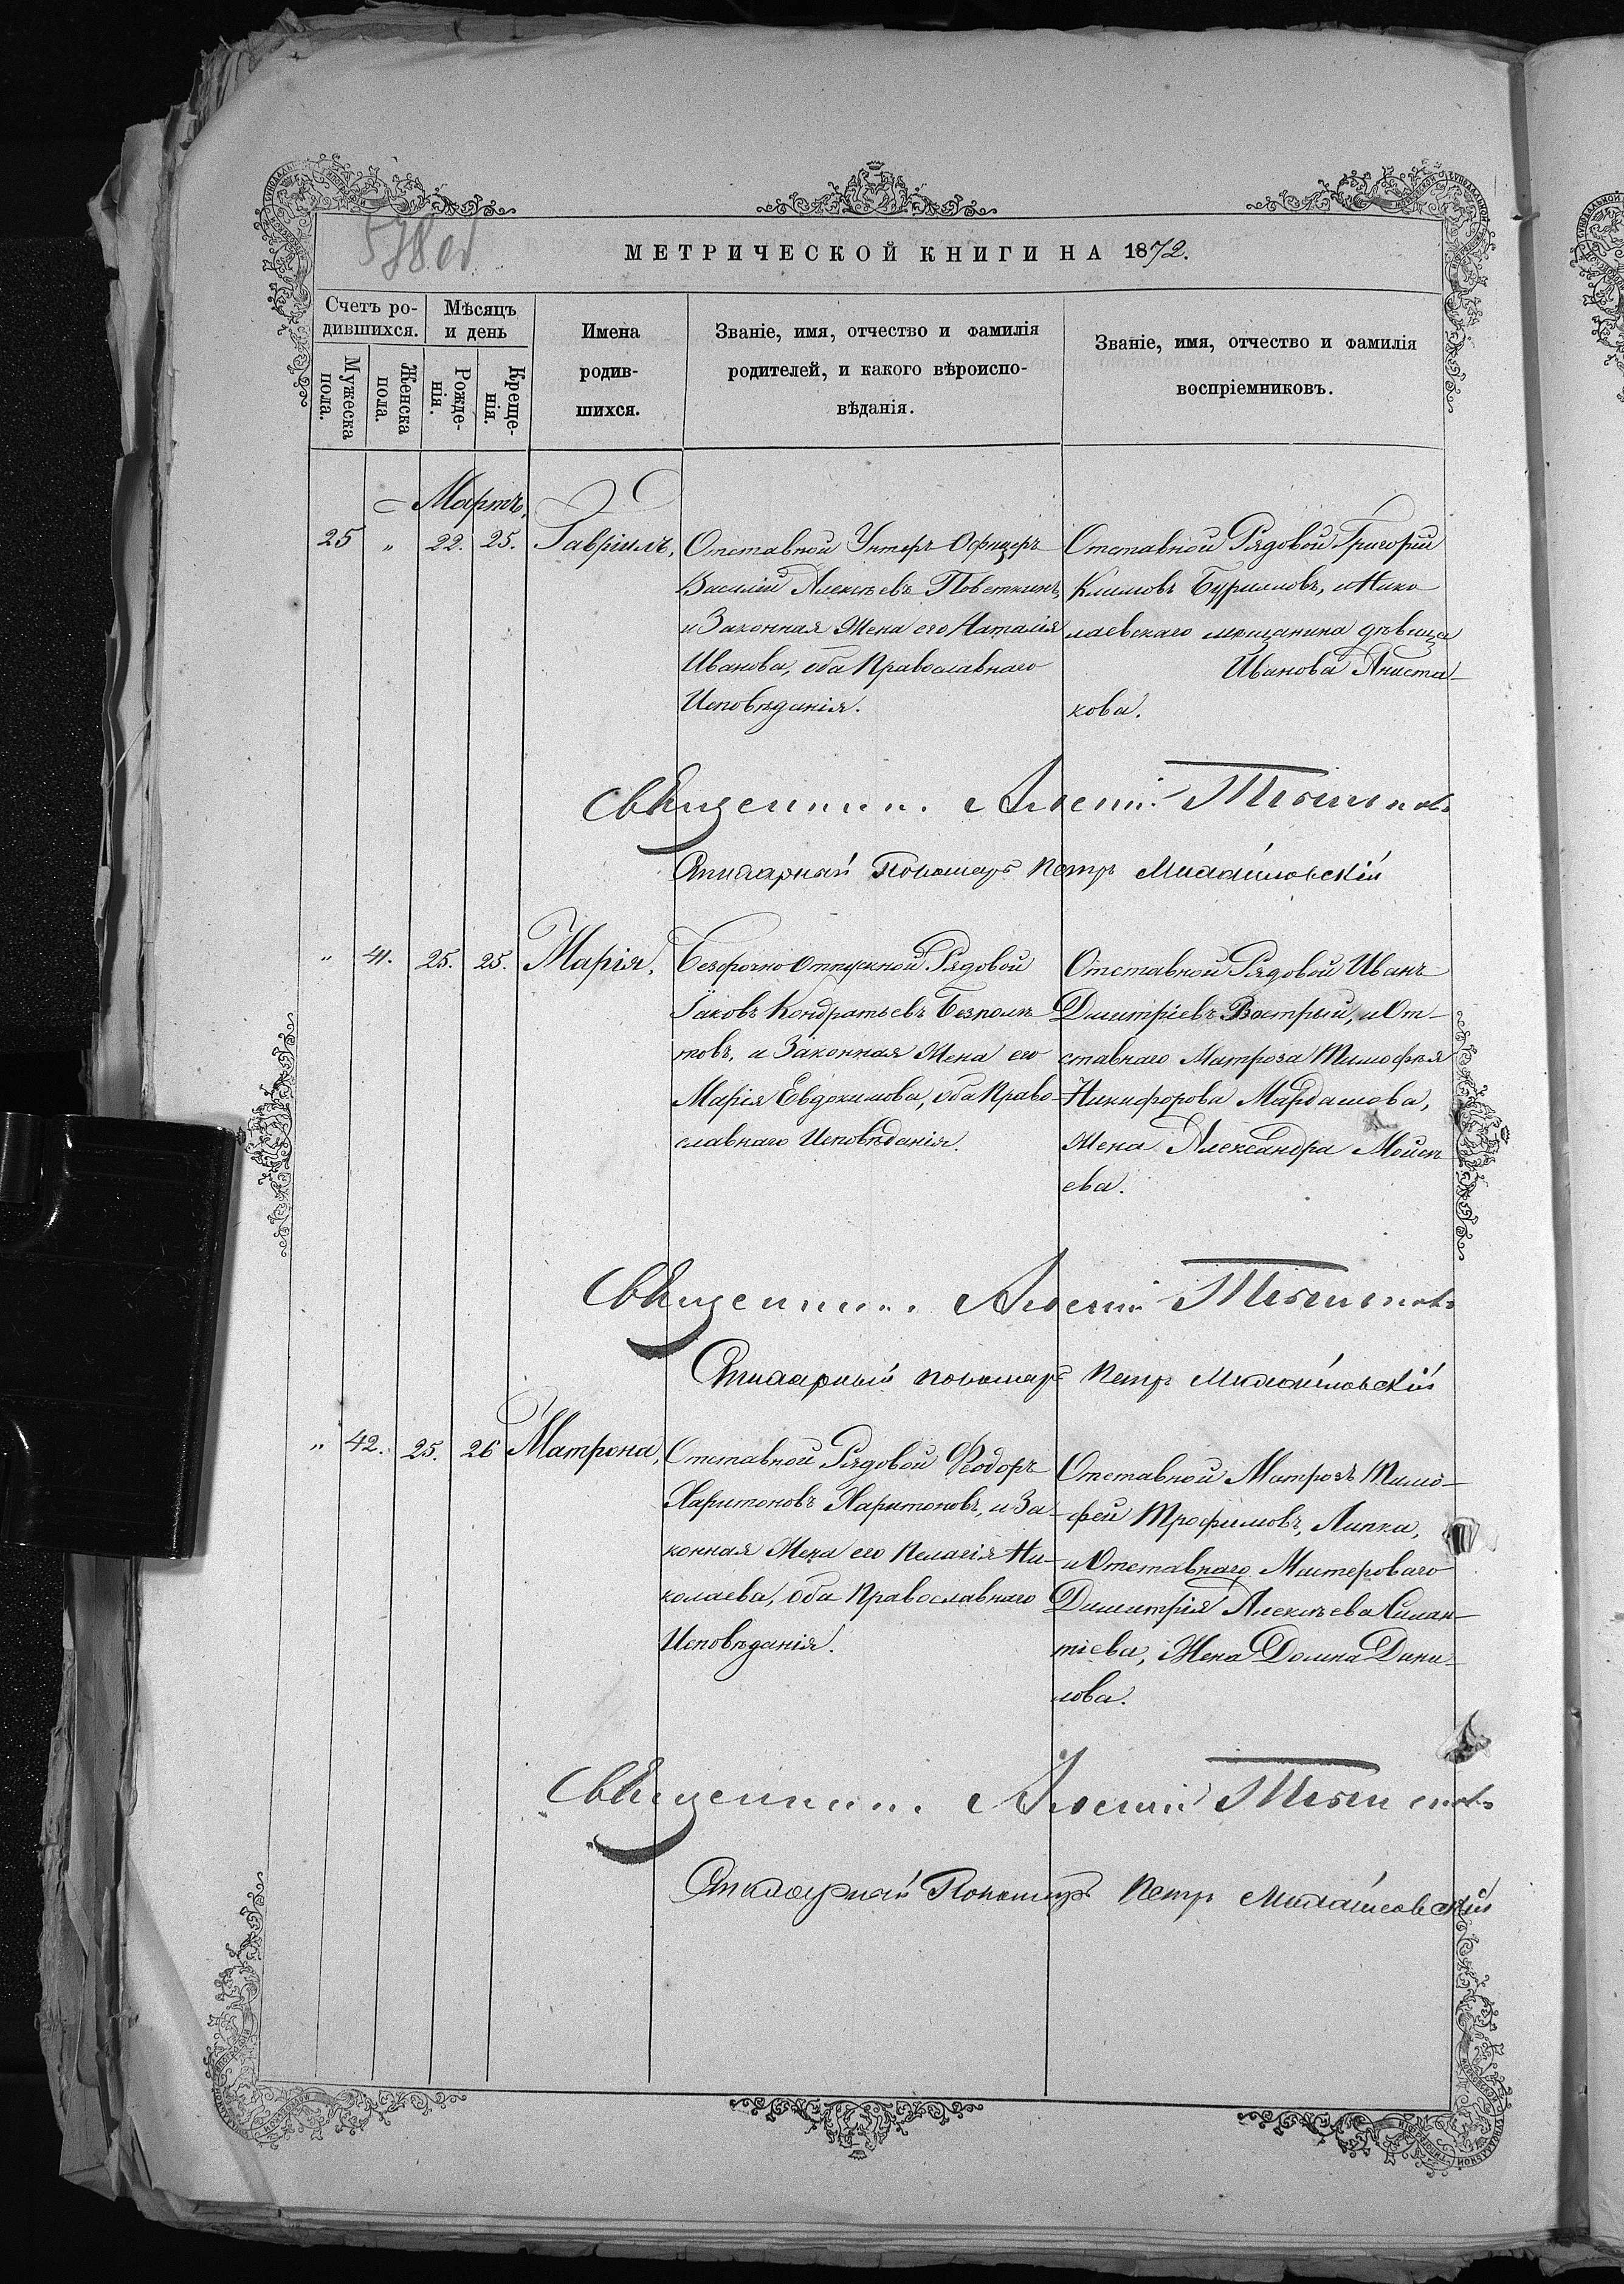 МЕТРИЧЕСКОЙ КНИГИ НА 1872.
Счетъ ро-
дившихся.
Мѣсяцъ
и день
Мужеска
пола.
Женска
пола.
Рожде-
нія.
Креще-
нія.
Имена
родив-
шихся.
Званіе, имя, отчество и фамилія
родителей, и какого вѣроиспо-
вѣданія.
Званіе, имя, отчество и фамилія
воспріемниковъ.
Мартъ,
25 " 22. 25. Гавріилъ,
Отставной Унтеръ Офицеръ
Василій Алексѣевъ Поветкинъ,
и Законная Жена его Наталія
Иванова, оба Православнаго
Исповѣданія.
Отставной Рядовой Григорій
Климовъ Буримовъ, и Нико
лаевскаго мѣщанина дѣвица
Иванова Аниста-
кова.
Священник. Алексій
Пономарь Петръ
" 41. 25. 25. Марія,
Безсрочно отпускной Рядовой
Іаковъ Кондратьевъ Безполи-
товъ, и Законная Жена его
Марія Евдокимова, оба Право-
славнаго Исповѣданія.
Отставной Рядовой Иванъ
Димитріевъ Вострый, и От-
ставнаго Матроза Тимофѣя
Никифорова Мардашова,
Жена Александра Моисѣ
ева.
Священник. Алексій
пономарь Петръ
" 42. 25. 26 Матрона,
Отставной Рядовой Ѳеодоръ
Харитоновъ Харитоновъ, и За-
конная Жена его Пелагія Ни-
колаева, оба Православнаго
Исповѣданія.
Отставной Матрозъ Тимо-
фей Трофимовъ, Липка,
и Отставнаго Мастероваго
Димитрія Алексѣева Силан-
тіева, Жена Домна Дани-
лова.
Священник. Алексій
Пономарь Петръ